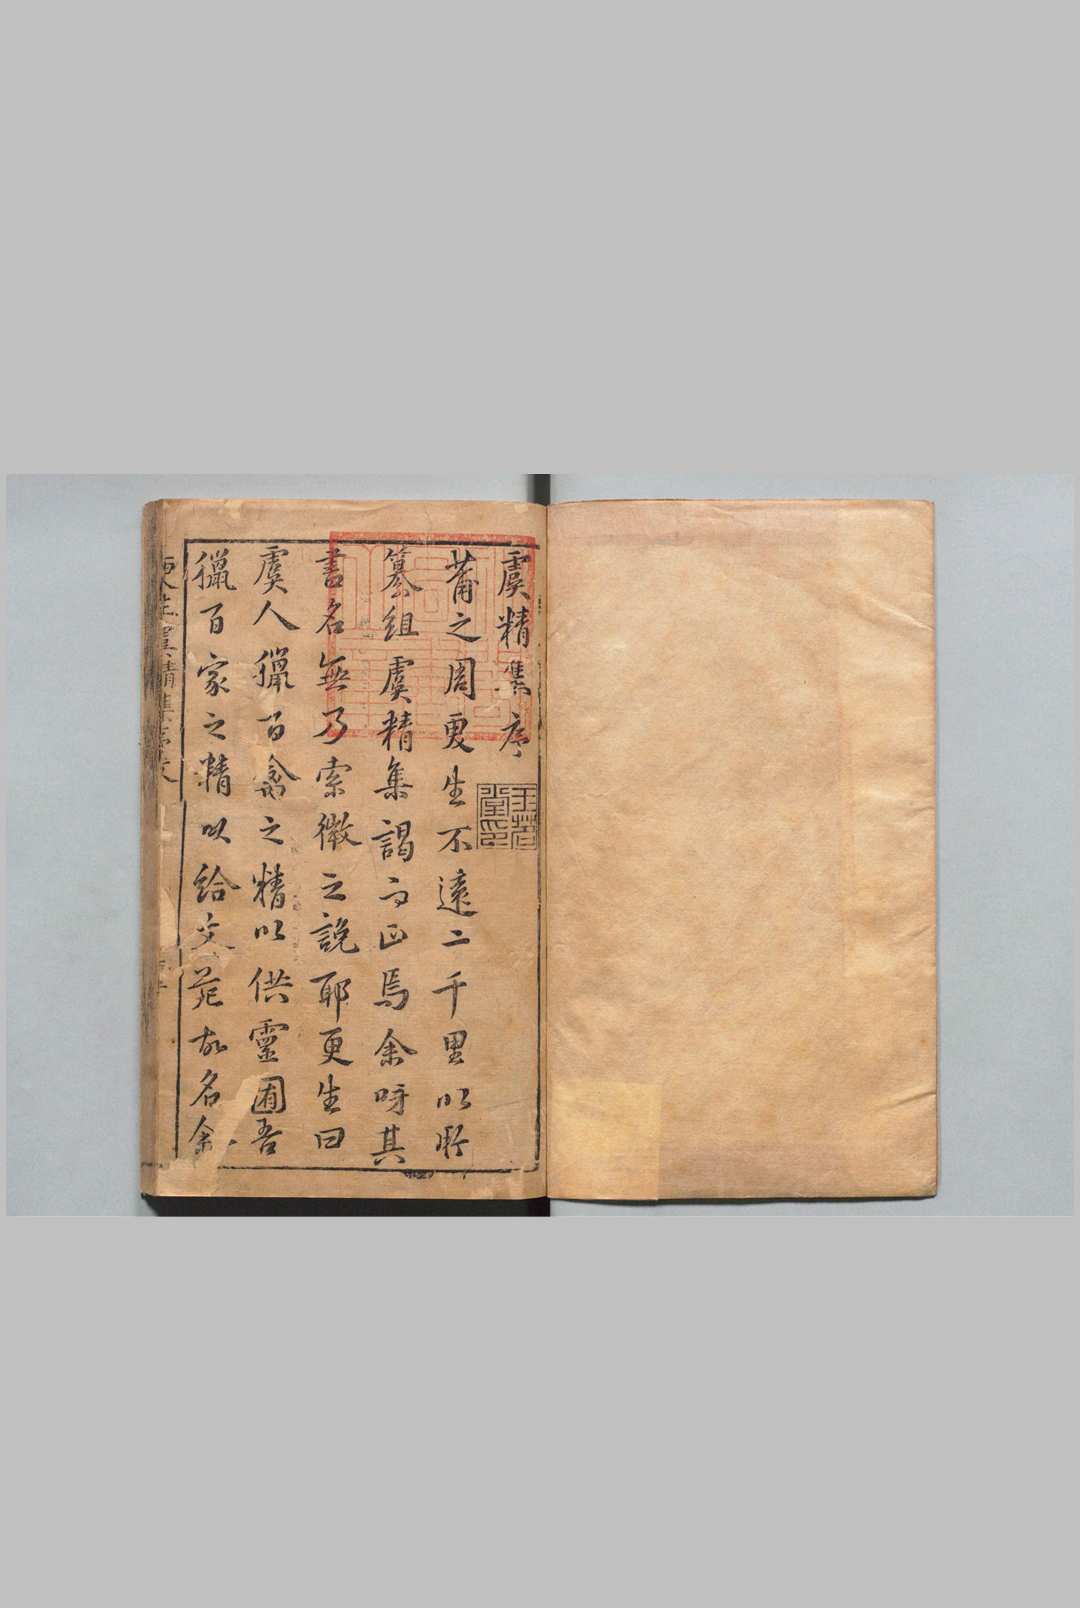 虞精集序
莆之周更生不遠二千里以所
纂組虞精集謁而正焉余呀其
書名無乃索徵之說耶更生曰
虞人獵百禽之精以供靈囿吾
獵百家之精以給文苑故名余